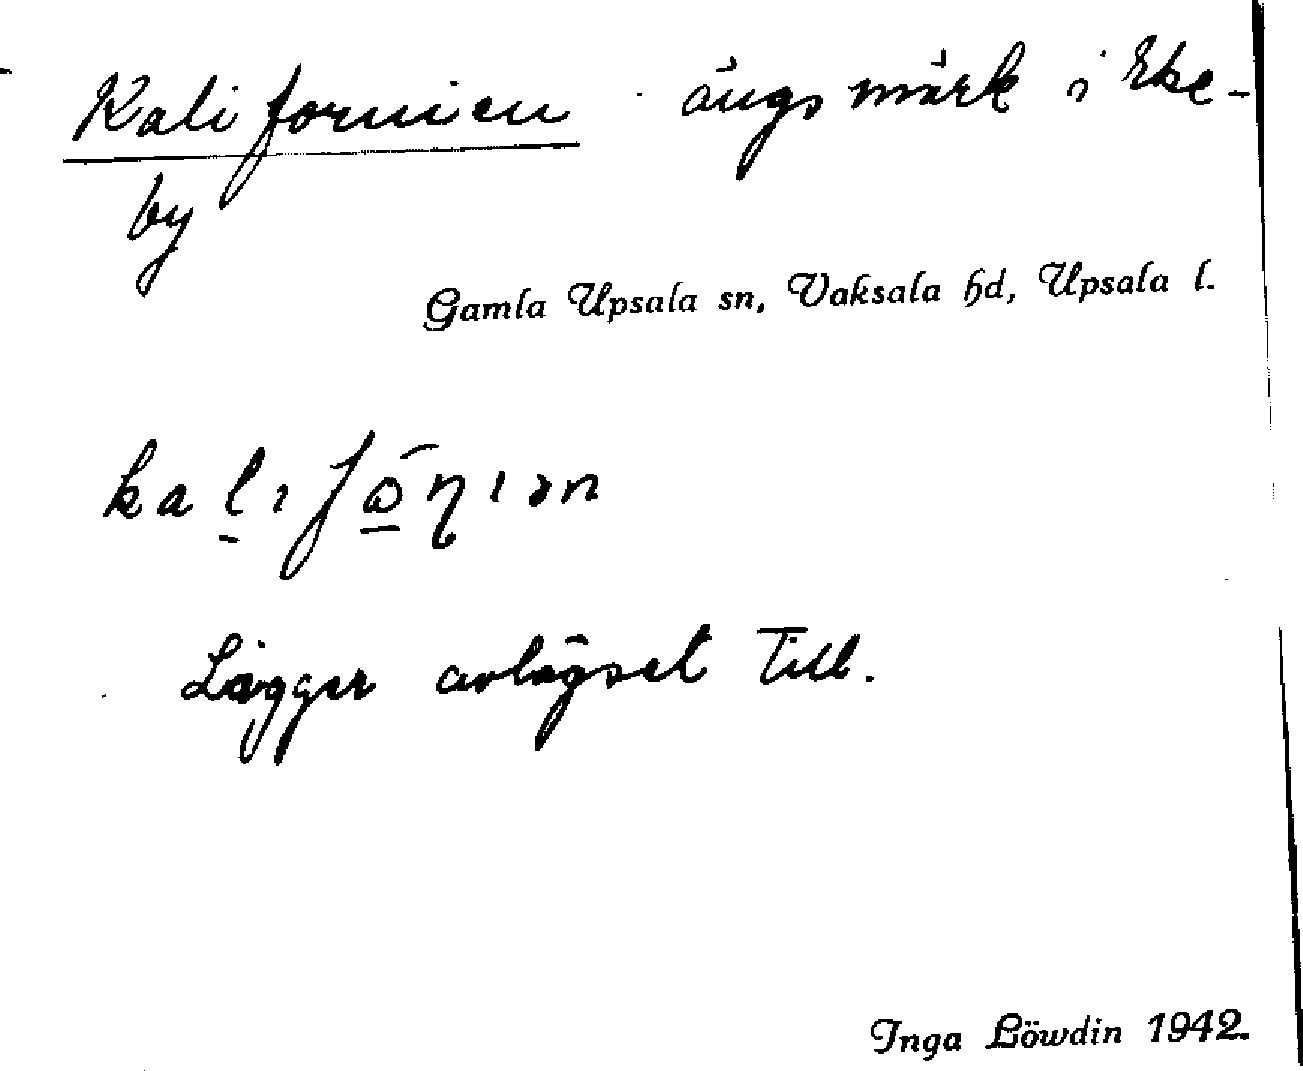 Kalifornien ängsmärk i Eke-
by
Gamla Upsala sn, Vaksala hd, Upsala l.
kalifǿṇıən
Lägger avlägset till.
Inga Löwdin 1942.